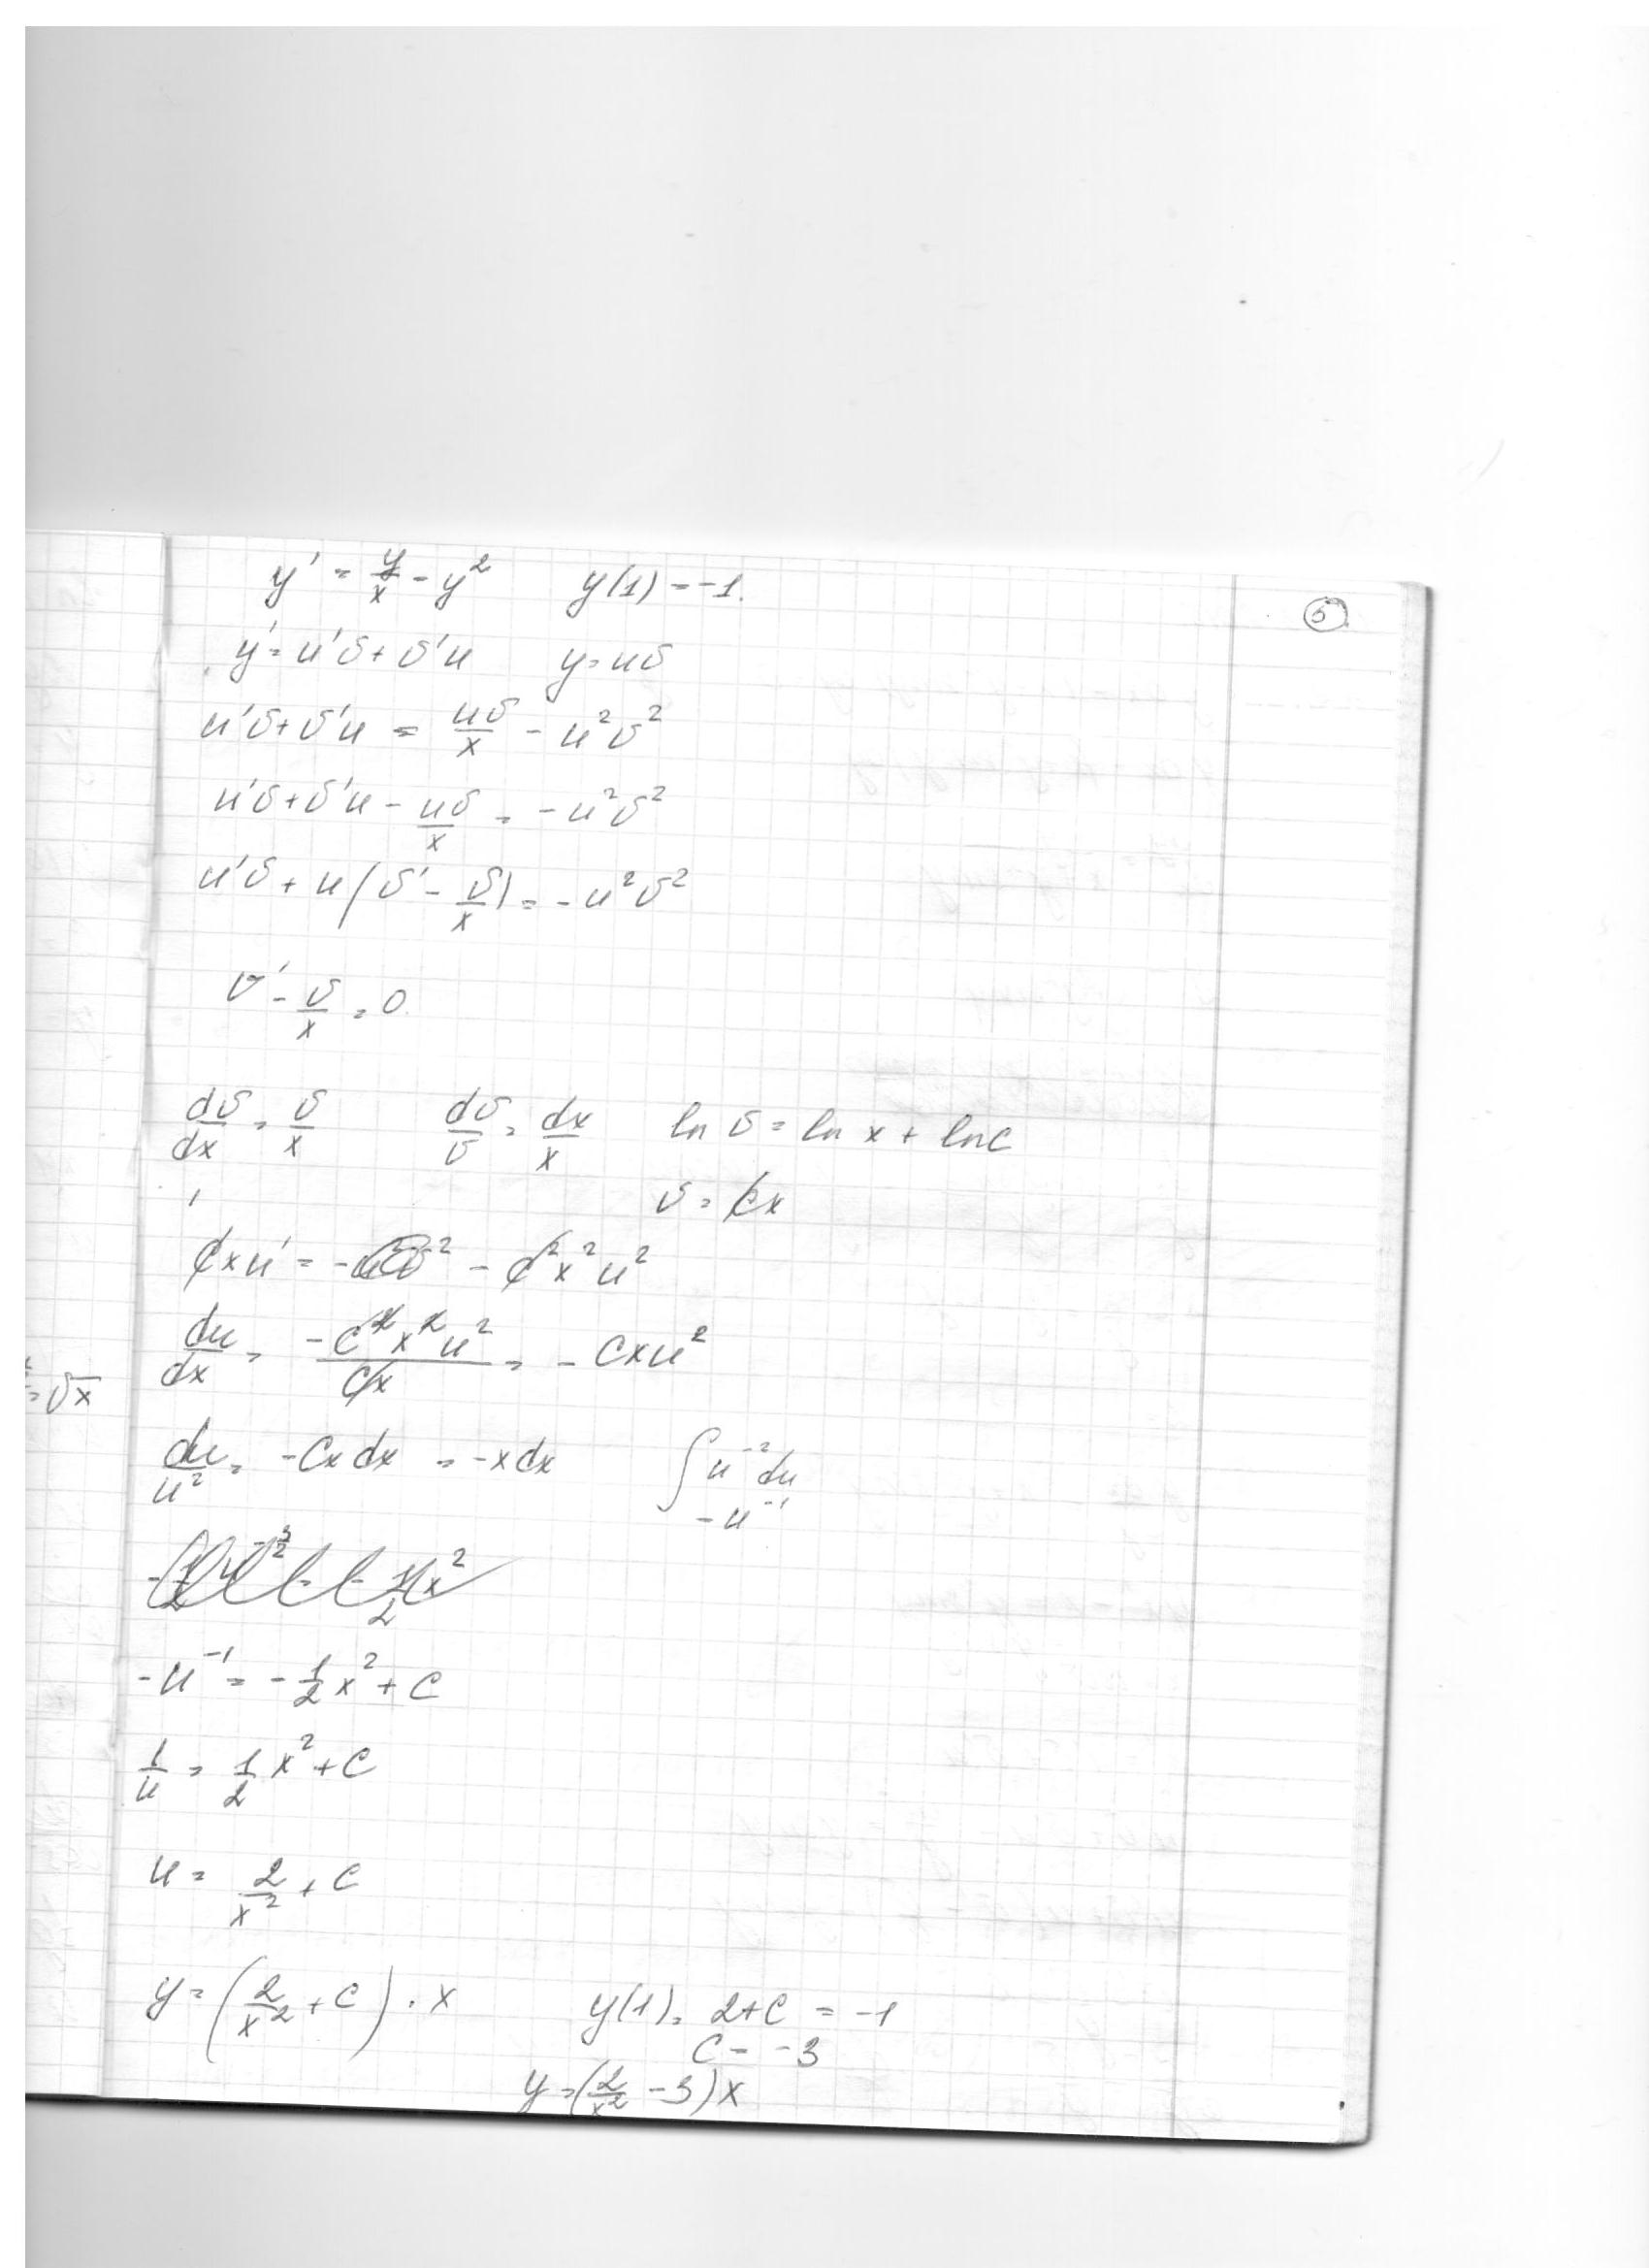 y' = y/x - y²    y(1) = -1.
5
y' = u'υ + υ'u    y = uυ
u'υ + υ'u = uυ/x - u²υ²
u'υ + υ'u - uυ/x = -u²υ²
u'υ + u(υ' - υ/x) = -u²υ²
υ' - υ/x = 0.
dυ/dx = υ/x    dυ/υ = dx/x    ln υ = ln x + ln c
υ = cx
cxu' = - c²x²u²
du/dx = -c²x²u²/cx = - cxu²
= √x
du/u² = -Cx dx = -x dx    ∫u⁻²du
-u⁻¹
-u⁻¹ = -1/2 x² + C
1/u = 1/2 x² + C
u = 2/x² + C
y = (2/x² + C) · x    y(1) = 2+C = -1
C = -3
y = (2/x² - 3)x